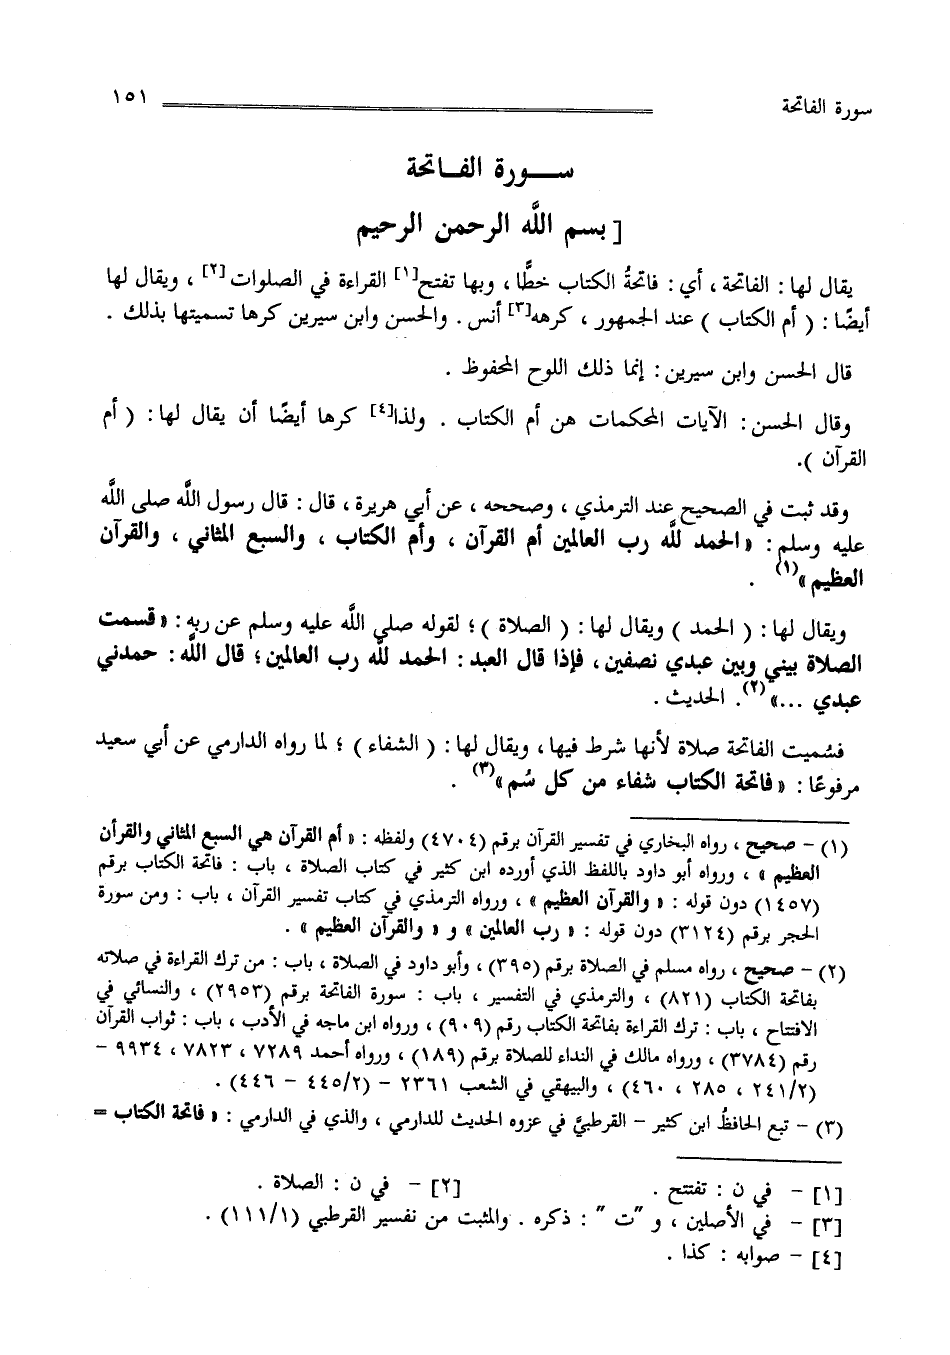 سورة الفاتحة ١٥١
ســـورة الفـاتحة
[ بسم اللَّه الرحمن الرحيم
يقال لها : الفاتحة ، أي : فاتحةُ الكتاب خطًّا ، وبها تفتح[١] القراءة في الصلوات[٢] ، ويقال لها
أيضًا : ( أم الكتاب ) عند الجمهور ، كرهه[٣] أنس . والحسن وابن سيرين كرها تسميتها بذلك .
قال الحسن وابن سيرين : إنما ذلك اللوح المحفوظ .
وقال الحسن : الآيات المحكمات هن أم الكتاب . ولذا[٤] كرها أيضًا أن يقال لها : ( أم
القرآن ).
وقد ثبت في الصحيح عند الترمذي ، وصححه ، عن أبي هريرة ، قال : قال رسول اللَّه صلى اللَّه
عليه وسلم : « الحمد للَّه رب العالمين أم القرآن ، وأم الكتاب ، والسبع المثاني ، والقرآن
العظيم »(١) .
ويقال لها : ( الحمد ) ويقال لها : ( الصلاة ) ؛ لقوله صلى اللَّه عليه وسلم عن ربه : « قسمت
الصلاة بيني وبين عبدي نصفين ، فإذا قال العبد : الحمد للَّه رب العالمين ؛ قال اللَّه : حمدني
عبدي ...»(٢). الحديث .
فسُميت الفاتحة صلاة لأنها شرط فيها ، ويقال لها : ( الشفاء ) ؛ لما رواه الدارمي عن أبي سعيد
مرفوعًا : « فاتحة الكتاب شفاء من كل سُم »(٣) .
(١) – صحيح ، رواه البخاري في تفسير القرآن برقم (٤٧٠٤) ولفظه : « أم القرآن هي السبع المثاني والقرأن
العظيم » ، ورواه أبو داود باللفظ الذي أورده ابن كثير في كتاب الصلاة ، باب : فاتحة الكتاب برقم
(١٤٥٧) دون قوله : « والقرآن العظيم » ، ورواه الترمذي في كتاب تفسير القرآن ، باب : ومن سورة
الحجر برقم (٣١٢٤) دون قوله : « رب العالمين » و « والقرآن العظيم » .
(٢) – صحيح ، رواه مسلم في الصلاة برقم (٣٩٥) ، وأبو داود في الصلاة ، باب : من ترك القراءة في صلاته
بفاتحة الكتاب (٨٢١) ، والترمذي في التفسير ، باب : سورة الفاتحة برقم (٢٩٥٣) ، والنسائي في
الافتتاح ، باب : ترك القراءة بفاتحة الكتاب رقم (٩٠٩) ، ورواه ابن ماجه في الأدب ، باب : ثواب القرآن
رقم (٣٧٨٤) ، ورواه مالك في النداء للصلاة برقم (١٨٩) ، ورواه أحمد ٧٢٨٩ ، ٧٨٢٣ ، ٩٩٣٤ –
(٢٤١/٢ ، ٢٨٥ ، ٤٦٠) ، والبيهقي في الشعب ٢٣٦١ – (٤٤٥/٢ – ٤٤٦) .
(٣) – تبع الحافظُ ابن كثير – القرطبيَّ في عزوه الحديث للدارمي ، والذي في الدارمي : « فاتحة الكتاب =
[١] – في ن : تفتتح . [٢] – في ن : الصلاة .
[٣] – في الأصلين ، و "ت " : ذكره . والمثبت من تفسير القرطبي (١١١/١) .
[٤] – صوابه : كذا .